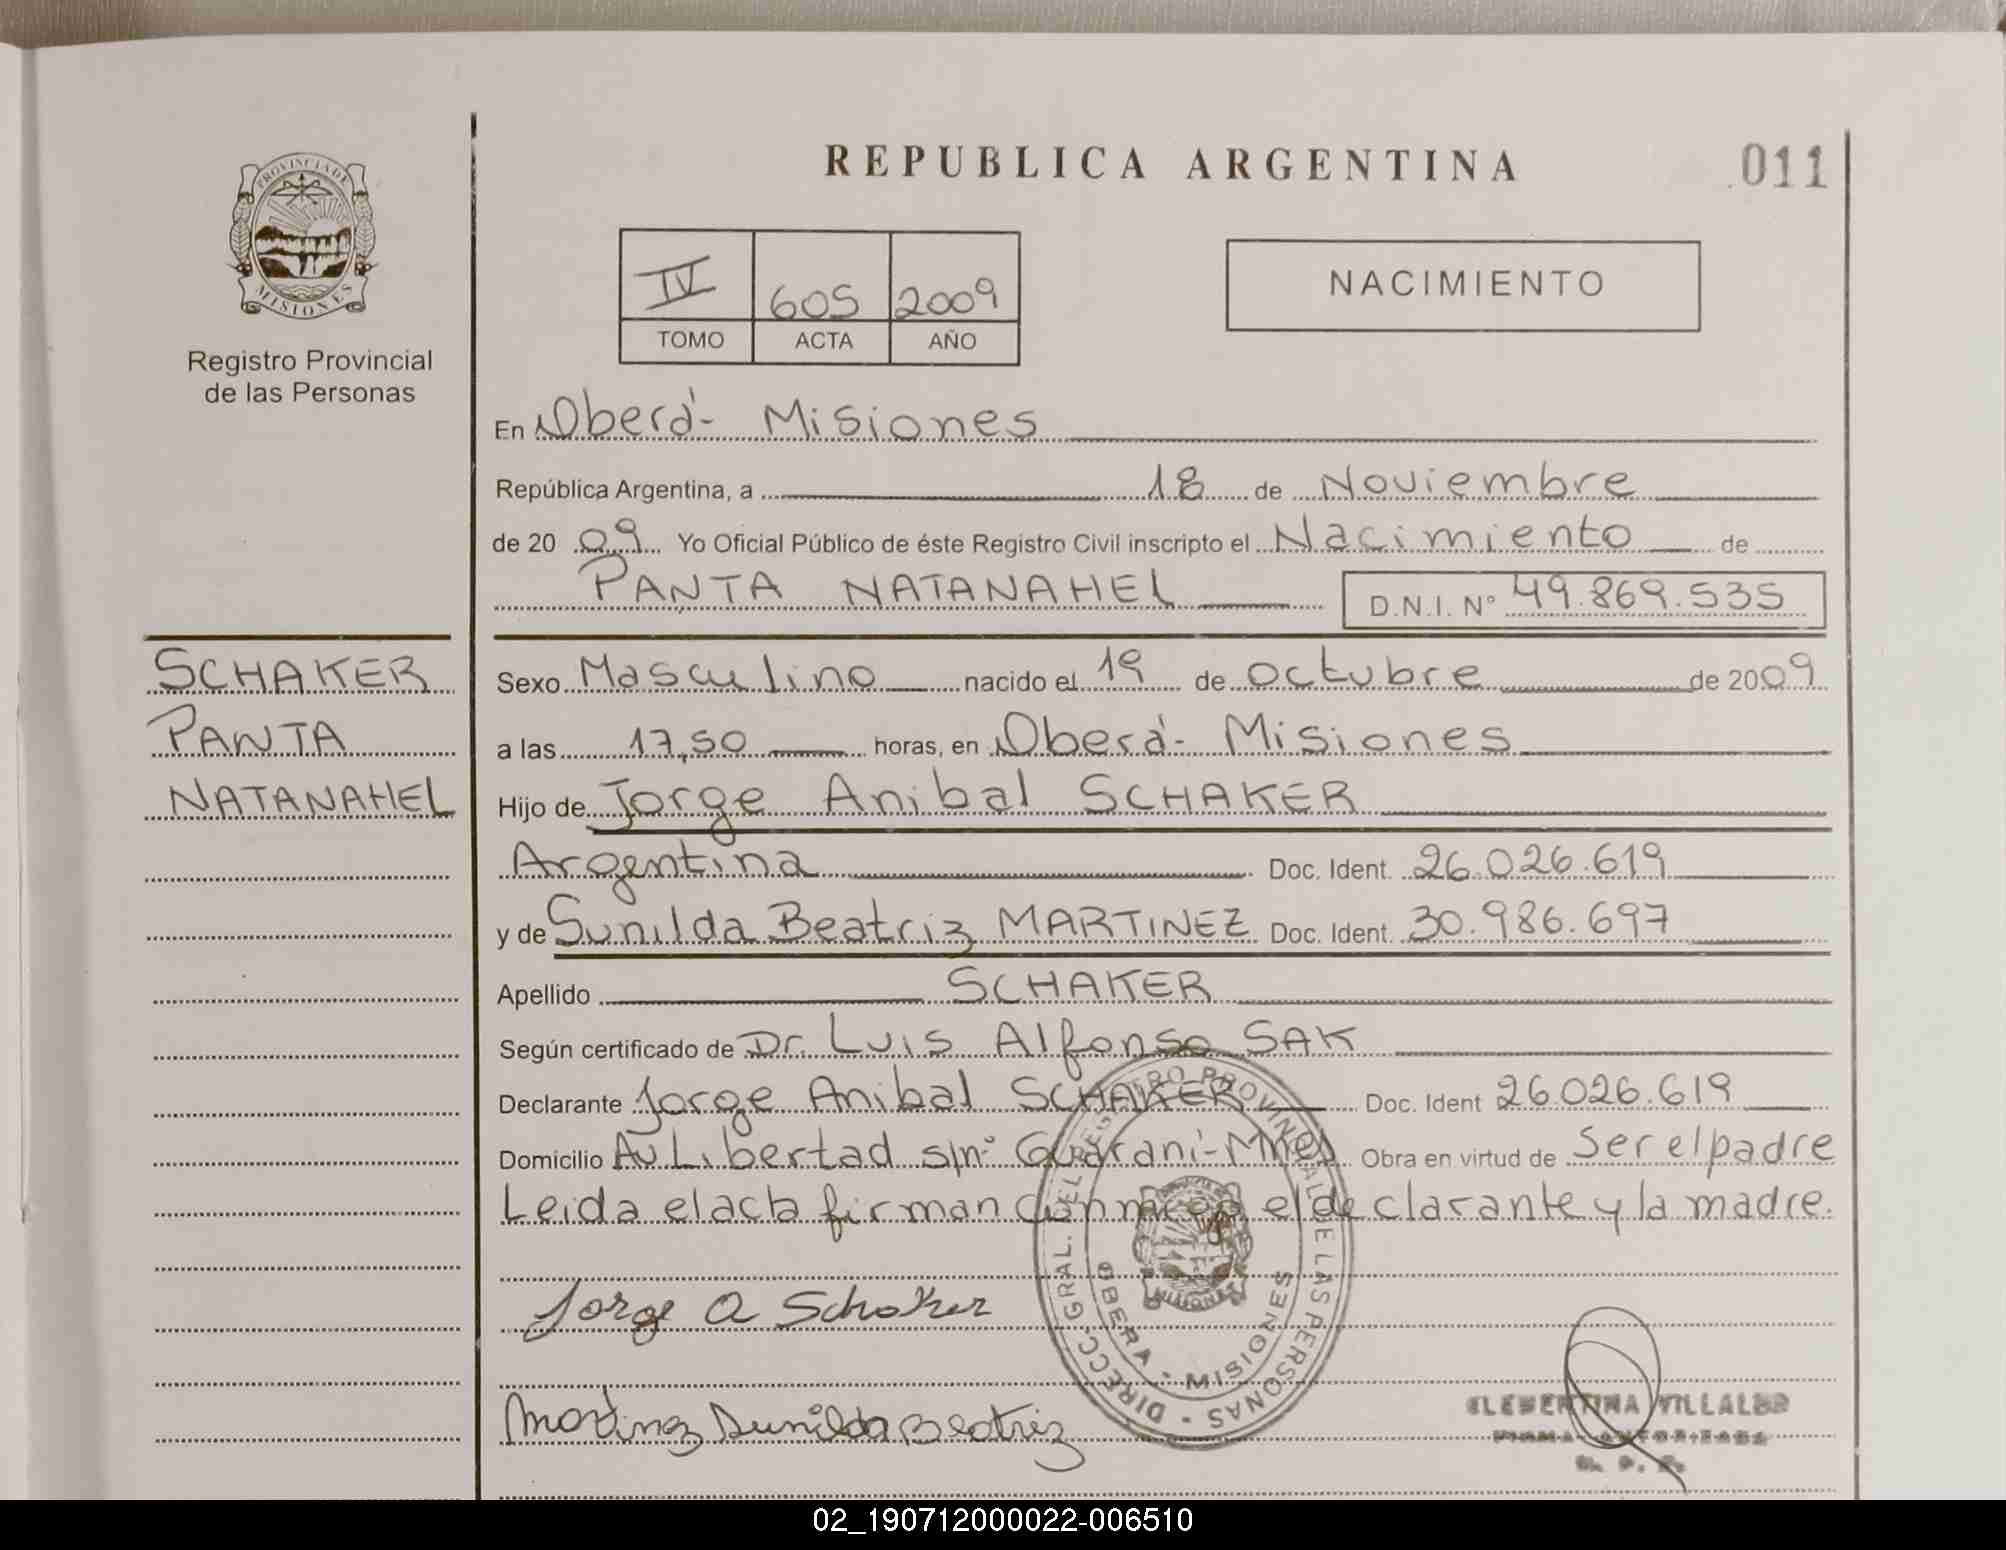 REPUBLICA ARGENTINA
011
PROVINCIA DE
MISIONES
Registro Provincial
de las Personas
IV 605 2009
TOMO ACTA AÑO
NACIMIENTO
En Oberá- Misiones
República Argentina, a 18 de Noviembre
de 2009 Yo Oficial Público de éste Registro Civil inscripto el Nacimiento de
PANTA NATANAHEL D.N.I. Nº 49.869.535
SCHAKER
PANTA
NATANAHEL
Sexo Masculino nacido el 19 de octubre de 2009
a las 17,50 horas, en Oberá- Misiones
Hijo de Jorge Anibal SCHAKER
Argentina Doc. Ident. 26.026.619
y de Sunilda Beatriz MARTINEZ Doc. Ident. 30.986.697
Apellido SCHAKER
Según certificado de Dr. Luis Alfonso SAK
Declarante Jorge Anibal SCHAKER Doc. Ident 26.026.619
Domicilio Av Libertad s/nº Guarani-Mnes Obra en virtud de Ser el padre
Leida el acta firman conmigo el declarante y la madre.
Jorge A Schaker
Martinez Sunilda Beatriz
DIRECC. GRAL. DEL REGISTRO PROVINCIAL DE LAS PERSONAS
OBERA - MISIONES
MISIONES
CLEMENTINA VILLALBA
FIRMA AUTORIZADA
02_190712000022-006510